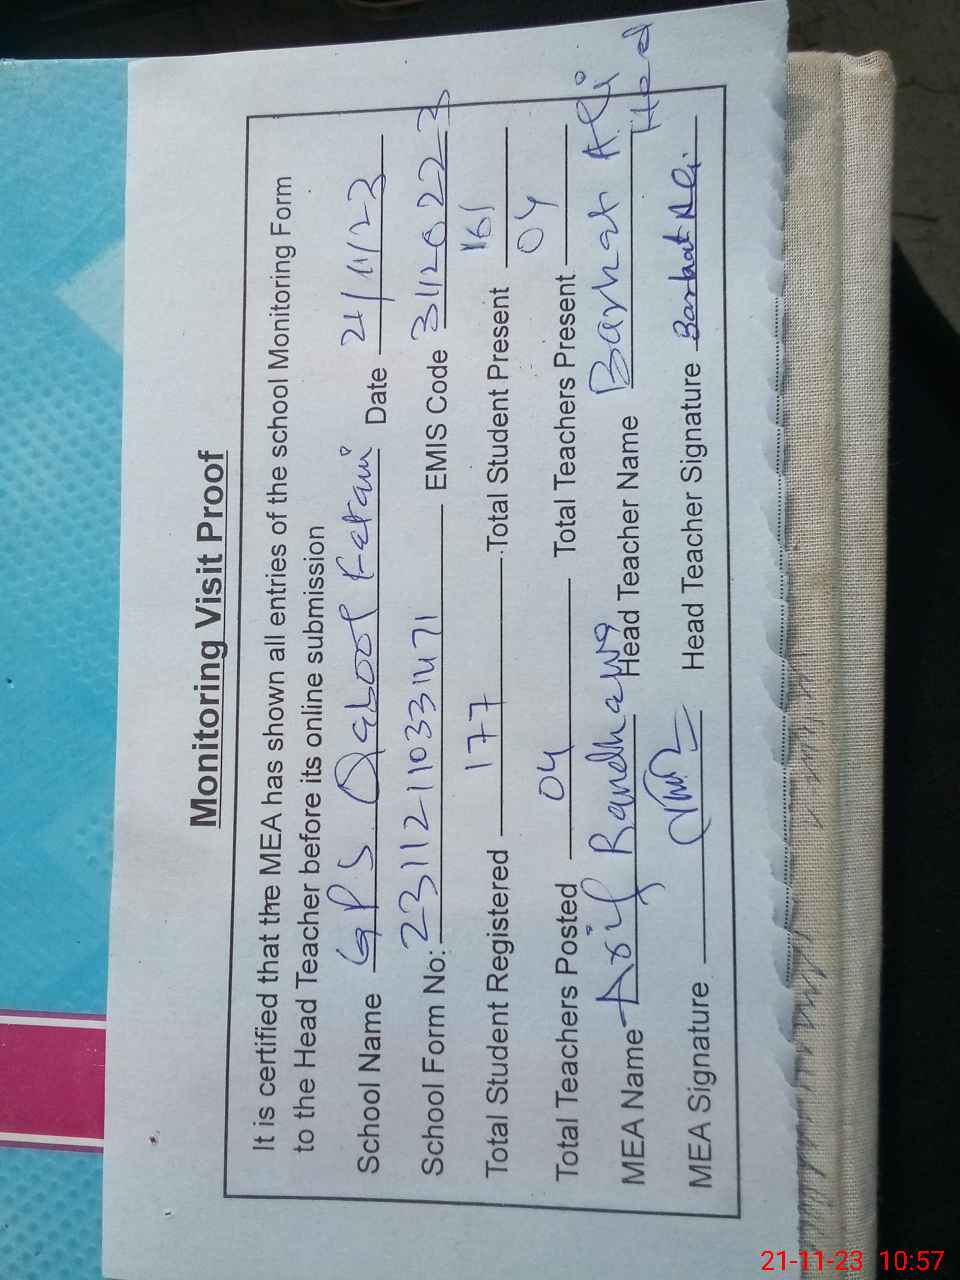 Monitoring Visit Proof
It is certified that the MEA has shown all entries of the school Monitoring Form
to the Head Teacher before its online submission
School Name GPS Qabool Ketani Date 21/11/23
School Form No: 231121103331471 EMIS Code 311202223
Total Student Registered 177 Total Student Present 161
Total Teachers Posted 04 Total Teachers Present 04
MEA Name Arif Randhawa Head Teacher Name Barkat Ali
MEA Signature Head Teacher Signature Barkat Ali
21-11-23 10:57